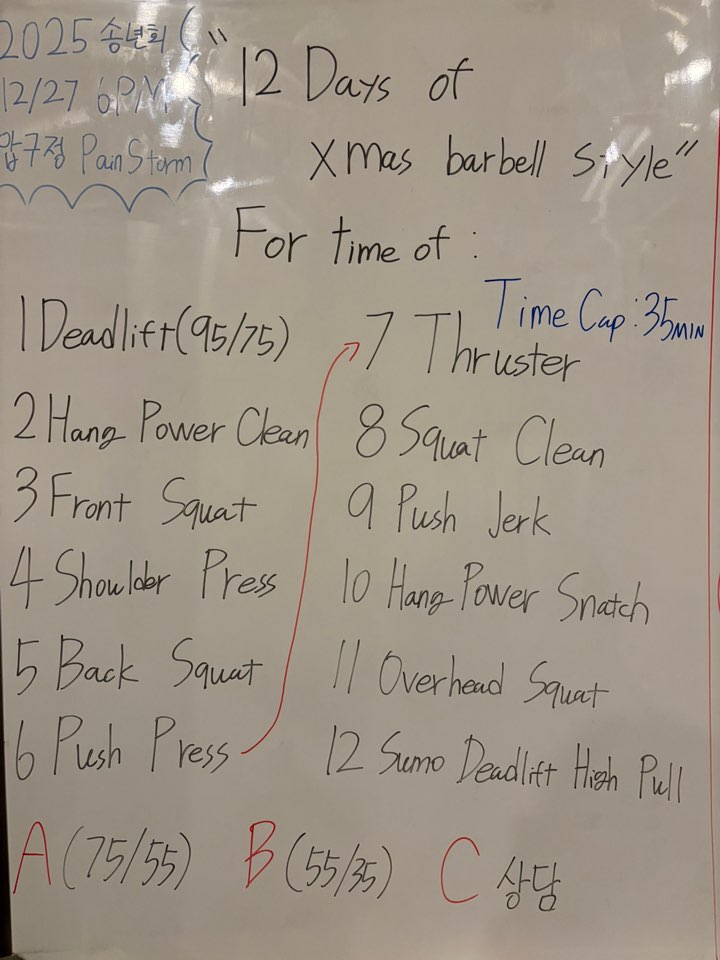 2025 송년회
12/27 6P.M
압구정 PainStorm
"12 Days of
Xmas barbell style"
For time of :
Time Cap : 35MIN
1 Deadlift (95/75)
2 Hang Power Clean
3 Front Squat
4 Shoulder Press
5 Back Squat
6 Push Press
7 Thruster
8 Squat Clean
9 Push Jerk
10 Hang Power Snatch
11 Overhead Squat
12 Sumo Deadlift High Pull
A (75/55) B (55/35) C 상담